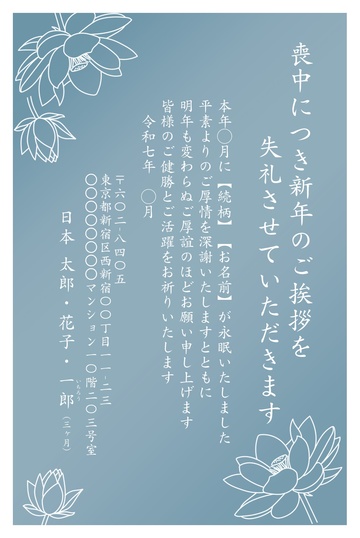 喪中につき新年のご挨拶を
失礼させていただきます
本年〇月に【続柄】【お名前】が永眠いたしました
平素よりのご厚情を深謝いたしますとともに
明年も変わらぬご厚誼のほどお願い申し上げます
皆様のご健勝とご活躍をお祈りいたします
令和七年 〇月
〒六〇二-八四〇五
東京都新宿区西新宿〇〇丁目一一-二三
〇〇〇〇〇〇〇〇マンション一〇階二〇三号室
日本 太郎・花子・一郎（三ヶ月）
いちろう